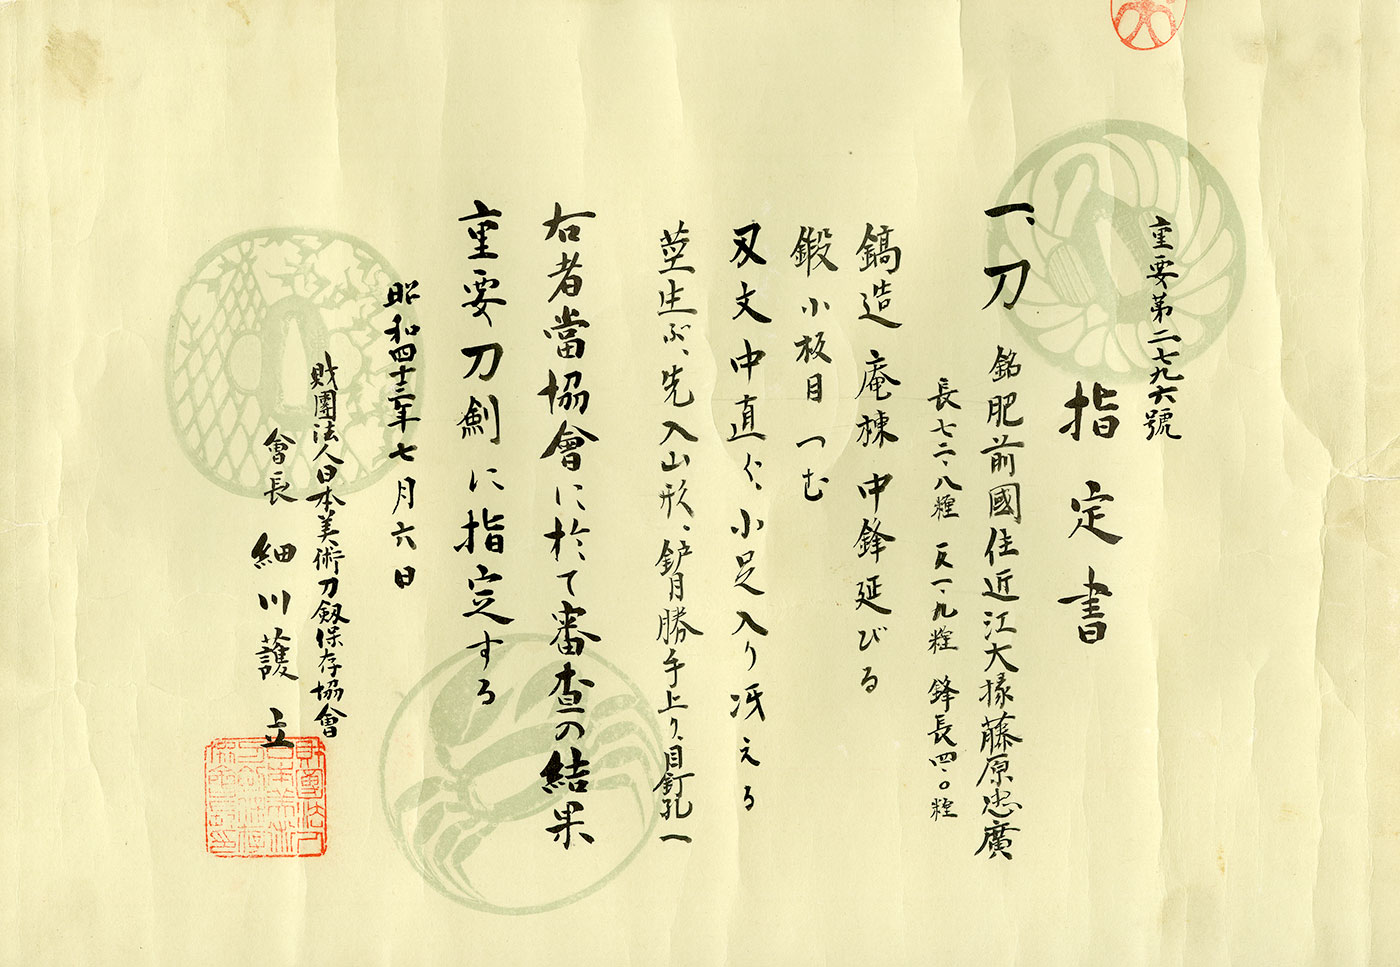 重要第二七九六號
指定書
一、刀 銘 肥前國住近江大掾藤原忠廣
長七二・八糎 反一・九糎 鋒長四・〇糎
鎬造 庵棟 中鋒延びる
鍛 小板目つむ
刃文 中直ぐ、小足入り冴える
茎 生ぶ、先入山形、鑢目勝手上り、目釘孔一
右者當協會に於て審査の結果
重要刀剣に指定する
昭和四十三年七月六日
財團法人日本美術刀劔保存協會
會長 細川護立